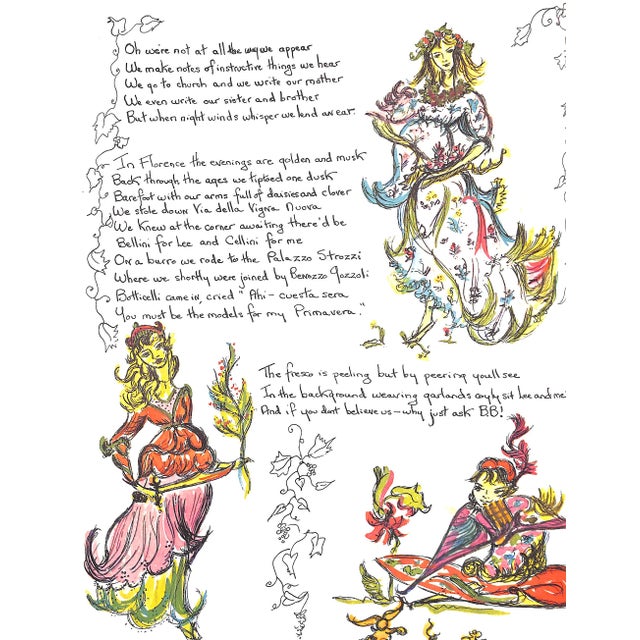 Oh we're not at all the way we appear
We make notes of instructive things we hear
We go to church and we write our mother
We even write our sister and brother
But when night winds whisper we lend an ear.
In Florence the evenings are golden and musk
Back through the ages we tiptoed one dusk
Barefoot with our arms full of daisies and clover
We stole down Via della Vigna Nuova
We knew at the corner awaiting there'd be
Bellini for Lee and Cellini for me
On a burro we rode to the Palazzo Strozzi
Where we shortly were joined by Benozzo Gozzoli
Botticelli came in, cried "Ahi - cuesta sera
You must be the models for my Primavera."
The fresco is peeling but by peering you'll see
In the background weaving garlands coyly sit Lee and me
And if you don't believe us - why just ask BB!